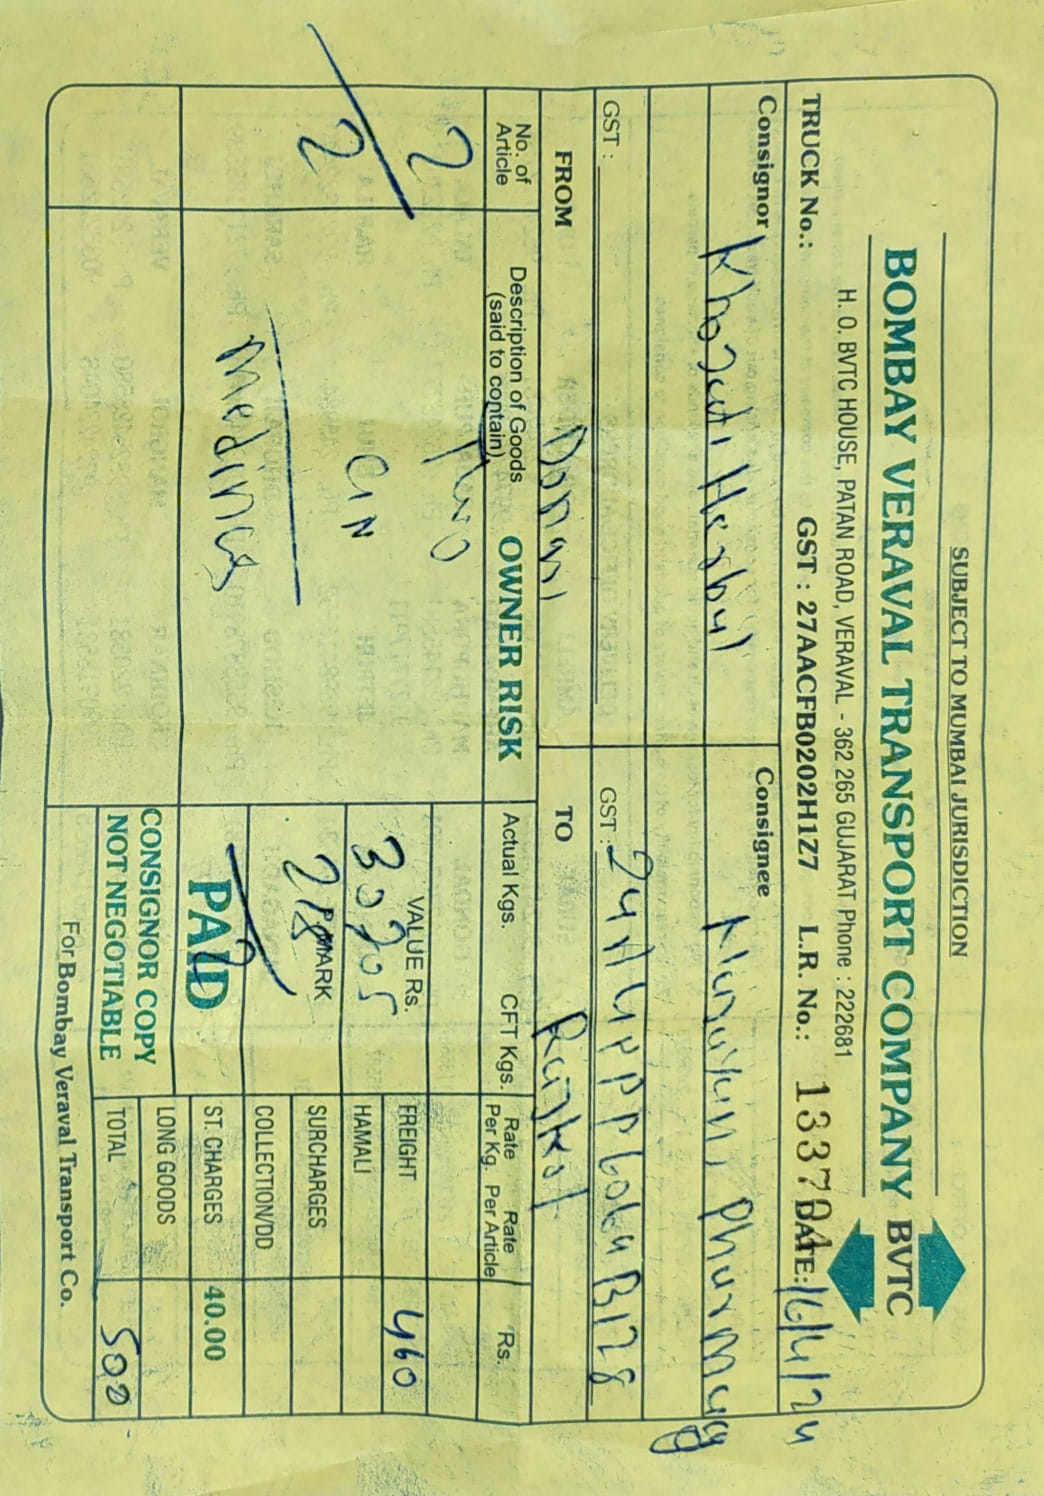 SUBJECT TO MUMBAI JURISDICTION
BOMBAY VERAVAL TRANSPORT COMPANY BVTC
H. O. BVTC HOUSE, PATAN ROAD, VERAVAL - 362 265 GUJARAT Phone : 222681
TRUCK No.: GST : 27AACFB0202H1Z7 L.R. No.: 133794 DATE: 16/4/24
Consignor Khodal Herbal Consignee Narayani Pharmacy
GST : GST :
FROM TO Rajkot
No. of Article Description of Goods (said to contain) OWNER RISK Actual Kgs. CFT Kgs. Rate Per Kg. Rate Per Article Rs.
2 Two VALUE Rs. FREIGHT 460
30705 HAMALI
2 P. MARK SURCHARGES
218 COLLECTION/DD
medincs PAID ST. CHARGES 40.00
CONSIGNOR COPY LONG GOODS
NOT NEGOTIABLE TOTAL 500
For Bombay Veraval Transport Co.